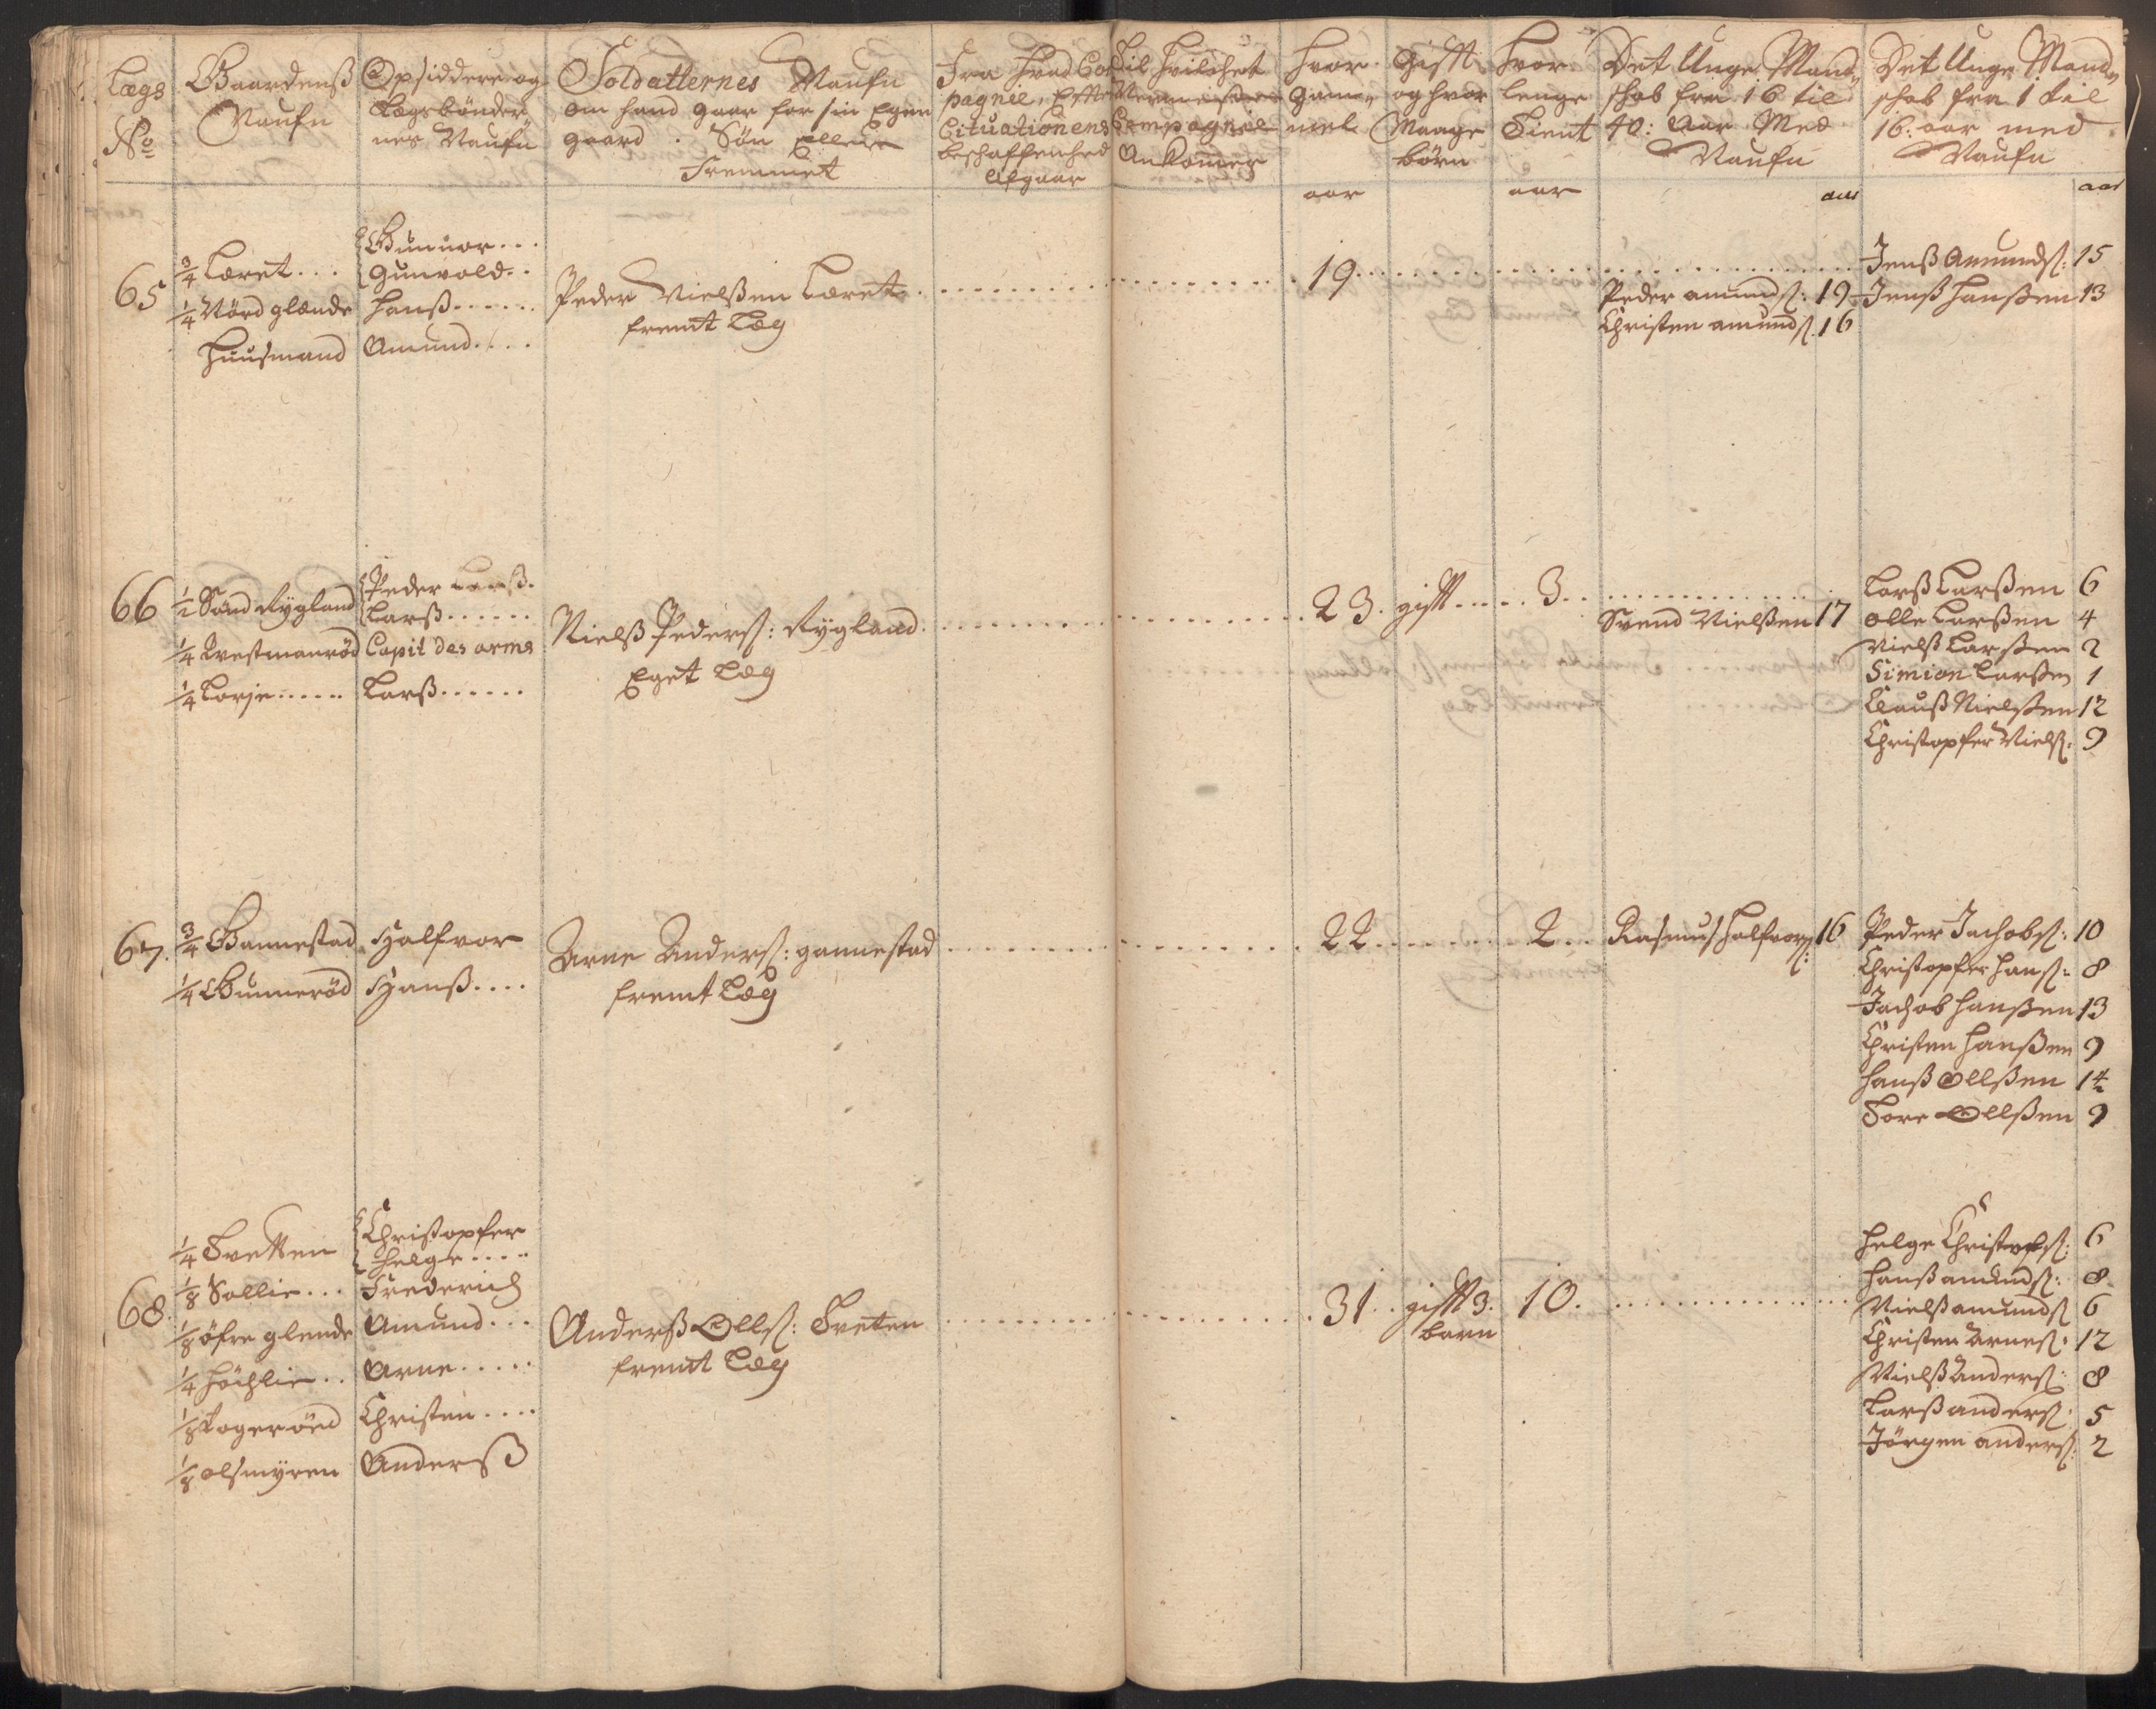 Lægs
No
Gaardenß
Naufn
Opsiddere og
Lægsbönder
nes Naufn
Soldatternes Naufn
om hand gaar for sin Egen
gaard . Sön Eller
Fremmet
Fra Hvad Com
pagnie, Effter
Cituationens
beschaffenhed
Afgaar
Til Hvilchet
Compagnie
Ankomer
Hvor
Gam„
mel
aar
Gifft
og hvor
Mange
börn
Hvor
lenge
Tient
aar
Det Unge Mand„
schab fra 16 til
40: Aar Med
Naufn
aar
Det Unge Mand„
schab fra 1 til
16: aar med
Naufn
aar
65
3/4 Læret...
1/4 Nördglænde
Huusmand
Gunuor...
Gunvold..
Hanß......
Amund....
Peder Nielßen Læret
fremt Læg
19
Peder amundß: 19
Christen amundß: 16
Jenß Amundß: 15
Jenß Hanßen 13
66
1/2 Sand Rÿgland
1/4 Westmanröd
1/4 Lorje.....
Peder Larß.
Larß......
Capit des arms
Larß......
Nielß Pederß: Rÿgland
Eget Læg
23. gifft.....3
Svend Nielßen 17
Larß Larßen 6
Olle Larßen 4
Nielß Larßen 2
Simion Larßen 1
Clauß Nielßen 12
Christopfer Nielß: 9
67.
3/4 Gannestad
1/4 Gunneröd
Halfvor
Hanß....
Arne Anderß: gannestad
fremt Læg
22......2..
Rasmus Halfvorß: 16
Peder Jachobß: 10
Christopfer Hanß: 8
Jachob Hanßen 13
Christen Hanßen 9
Hanß Ollßen 14
Tore Ollßen 9
68.
1/4 Tvetten
1/8 Sollie...
1/8 öfre glende
1/4 Höchlie..
1/8 Togeröed
1/8 olsmÿren
Christopfer
Helge....
Frederich
Amund...
Arne.....
Christen....
Anderß
Anderß Ollß: Tveten
fremt Læg
31.. gifft 3. 10.
barn
Helge Christofß: 6
Hanß amundß: 8
Nielß amundß 6
Christen Arneß: 12
Nielß Anderß: 8
Larß anderß: 5
Jörgen anderß: 2